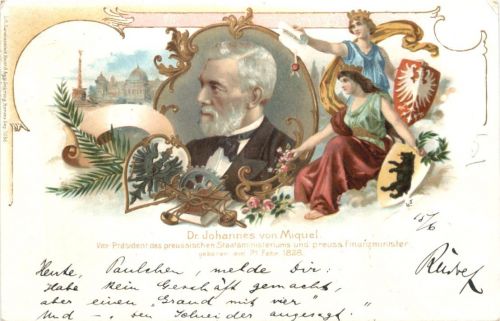 Dr. Johannes von Miquel.
Vice-Präsident des preussischen Staatsministeriums und preuss. Finanzminister.
geboren am 21. Febr. 1828.
15/6
Heute, Paulchen, melde Dir:
Habe kein Geschäft gemacht,
aber einen "Grand mit vier"
Und — den Schneider angesagt.